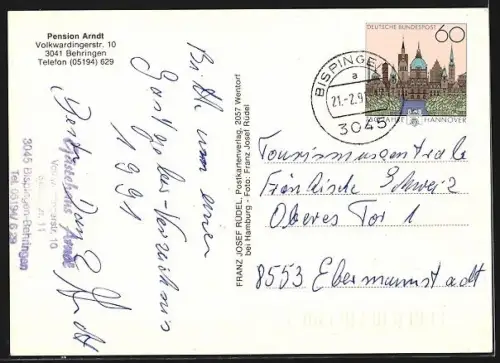 Pension Arndt
Volkwardingerstr. 10
3041 Behringen
Telefon (05194) 629
Bitte um einen
Gastgeber-Verzeichnis
1991
Besten Dank
Arndt
3045 Bispingen-Behringen
Tel. 05194/629
FRANZ JOSEF RÜDEL, Postkartenverlag, 2057 Wentorf
bei Hamburg · Foto: Franz Josef Rüdel
DEUTSCHE BUNDESPOST
60
JAHRE HANNOVER
BISPINGEN
a
21.-2.9
3045
Tourismuszentrale
Fränkische Schweiz
Oberes Tor 1
8553 Ebermannstadt